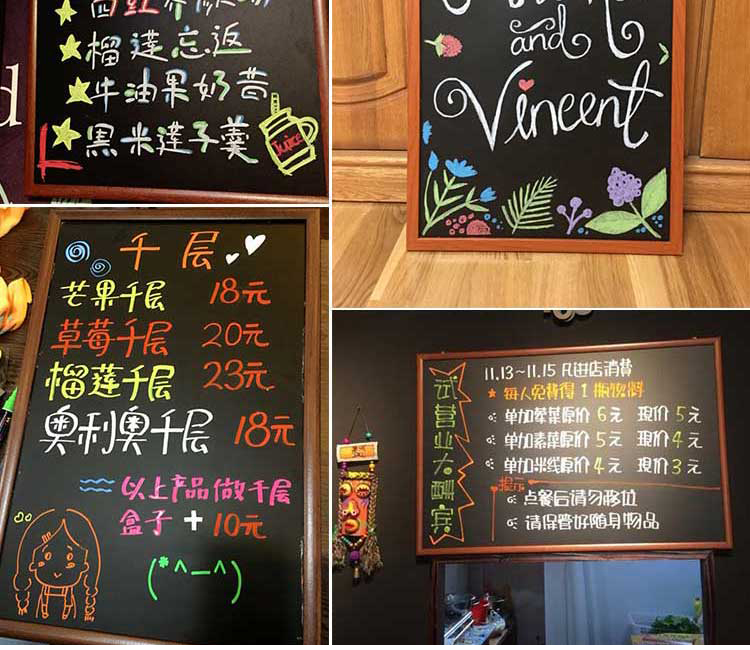 榴莲忘返
牛油果奶昔
黑米莲子羹
Juice
and
Vincent
千层
芒果千层 18元
草莓千层 20元
榴莲千层 23元
奥利奥千层 18元
以上产品做千层
盒子+10元
(*^—^)
试营业大酬宾
11.13~11.15 凡进店消费
每人免费得 1 瓶饮料
单加荤菜原价 6元 现价 5元
单加素菜原价 5元 现价 4元
单加米线原价 4元 现价 3元
提示
点餐后请勿移位
请保管好随身物品